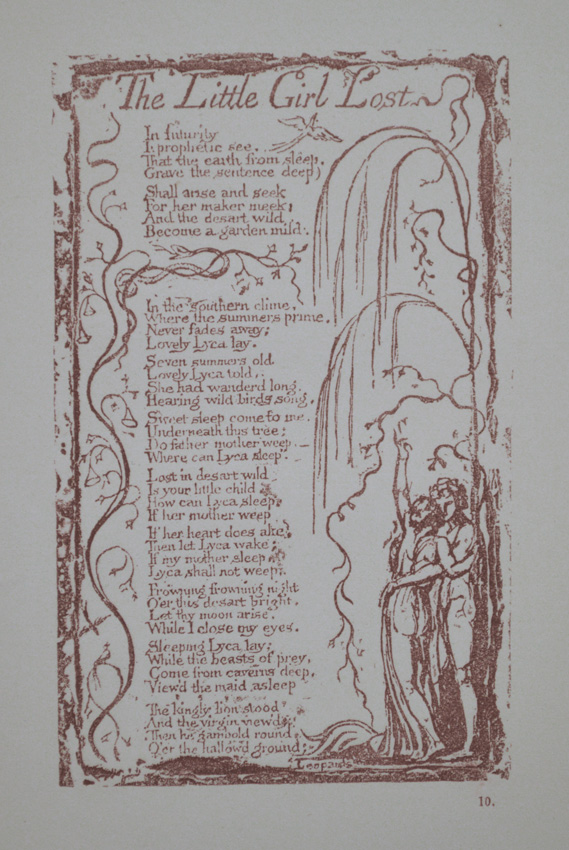 The Little Girl Lost
In futurity
I prophetic see,
That the earth from sleep,
(Grave the sentence deep)
Shall arise and seek
For her maker meek:
And the desart wild
Become a garden mild.
In the southern clime,
Where the summers prime,
Never fades away;
Lovely Lyca lay.
Seven summers old
Lovely Lyca told,
She had wanderd long,
Hearing wild birds song.
Sweet sleep come to me
Underneath this tree;
Do father mother weep.
Where can Lyca sleep.
Lost in desart wild
Is your little child
How can Lyca sleep
If her mother weep
If her heart does ake,
Then let Lyca wake;
If my mother sleep
Lyca shall not weep.
Frowning frowning night
O'er this desart bright,
Let thy moon arise,
While I close my eyes.
Sleeping Lyca lay:
While the beasts of prey,
Come from caverns deep,
View'd the maid asleep
The kingly lion stood
And the virgin view'd;
Then he gambold round
O'er the hallowd ground;
Leopards
10.